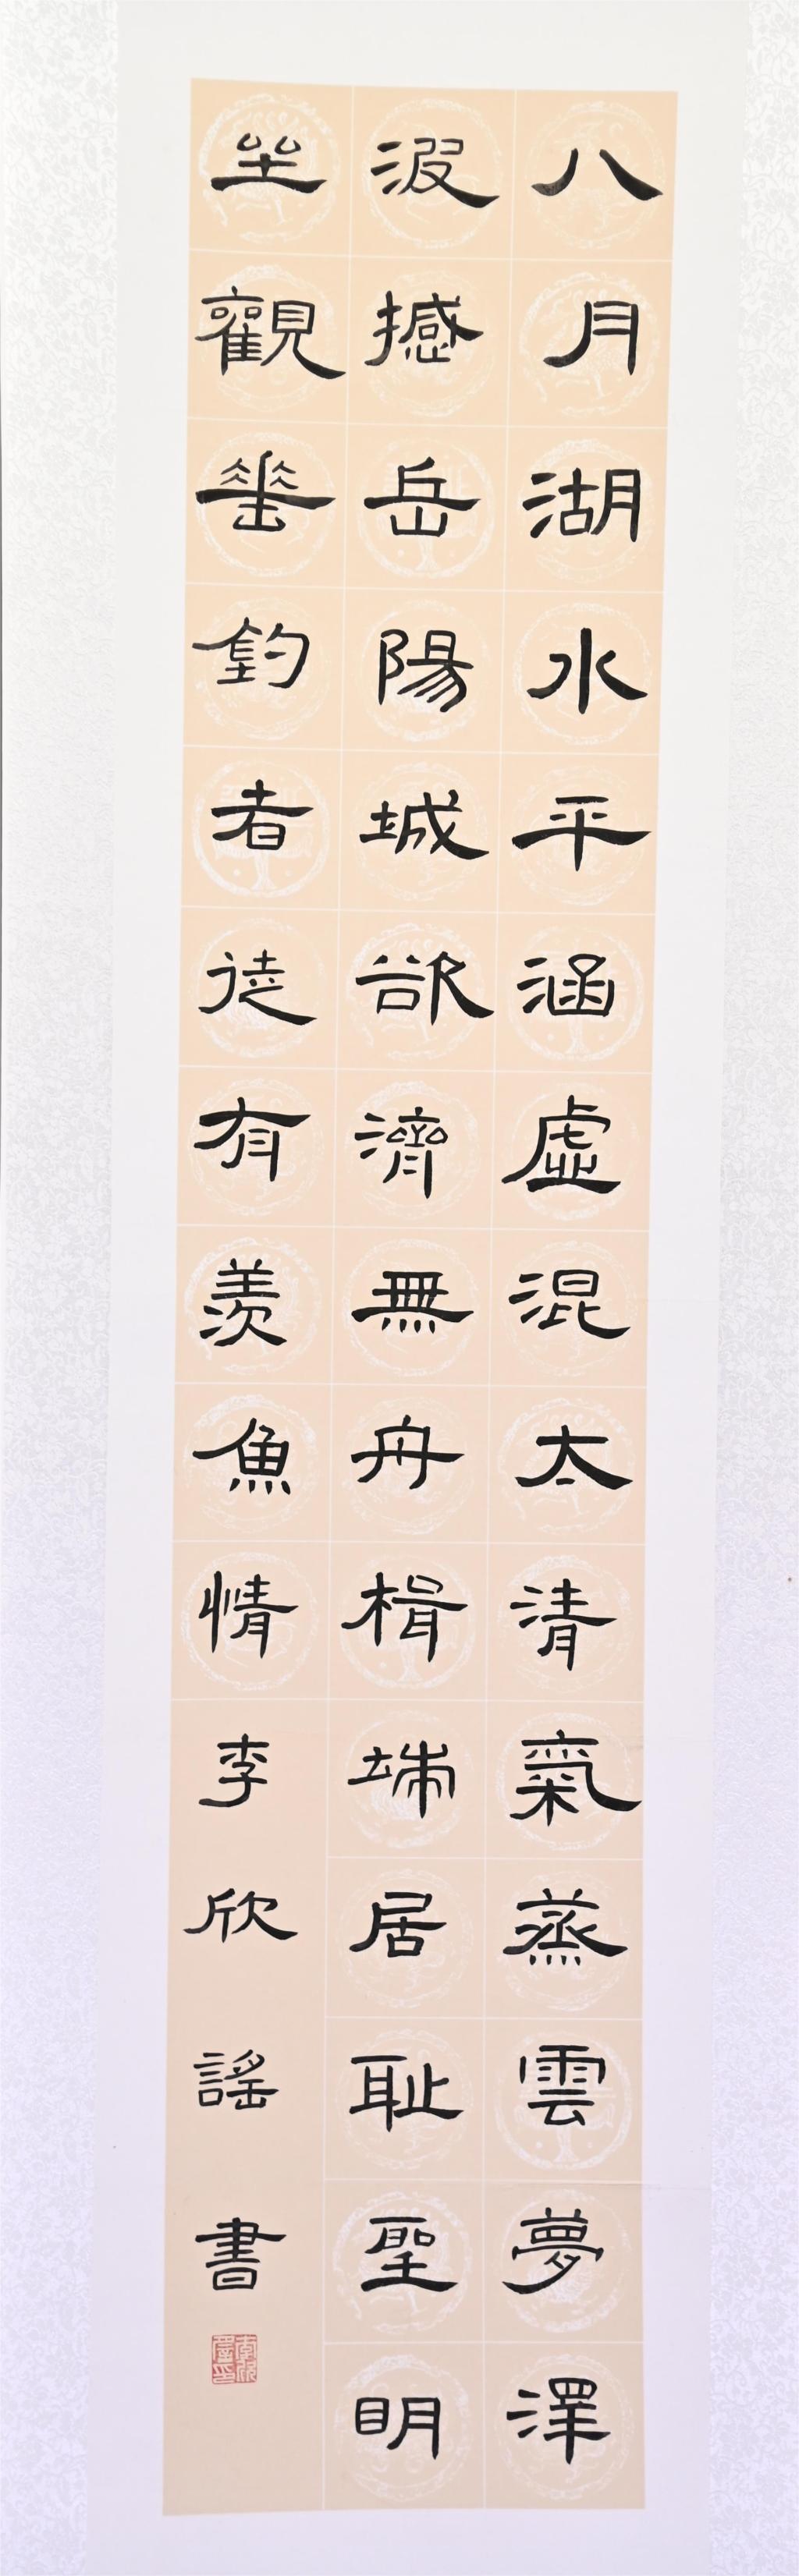 八月湖水平涵虛混太清氣蒸雲夢澤
波撼岳陽城欲濟無舟楫端居恥聖明
坐觀垂釣者徒有羨魚情李欣謠書